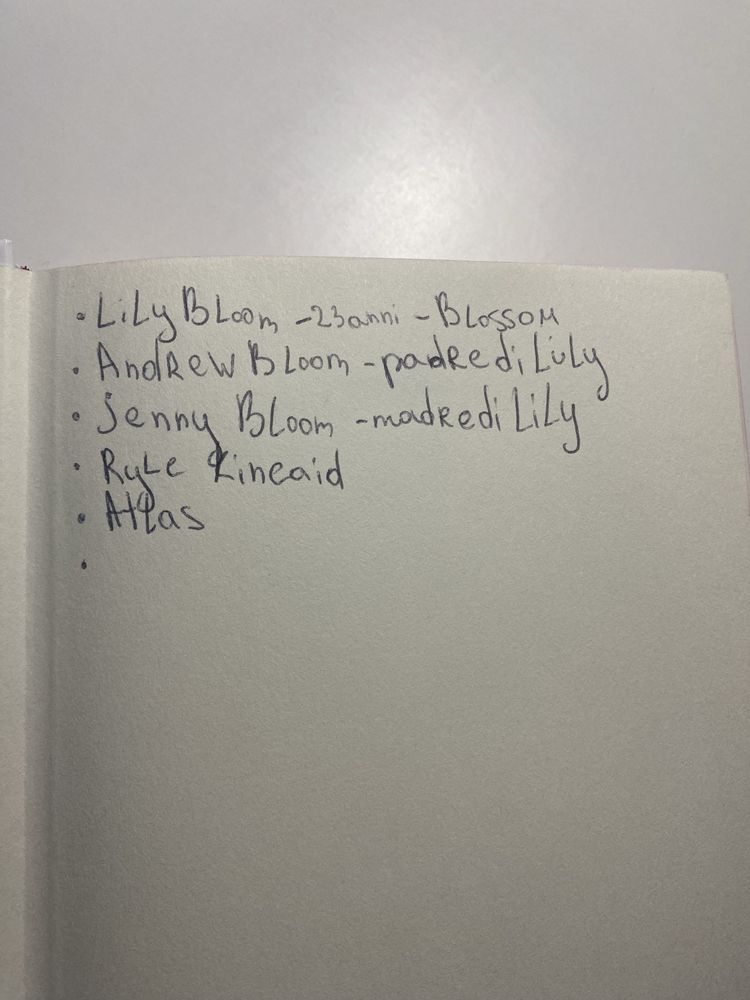 • Lily Bloom - 23 anni - Blossom
• Andrew Bloom - padre di Lily
• Jenny Bloom - madre di Lily
• Ryle Kincaid
• Atlas
•